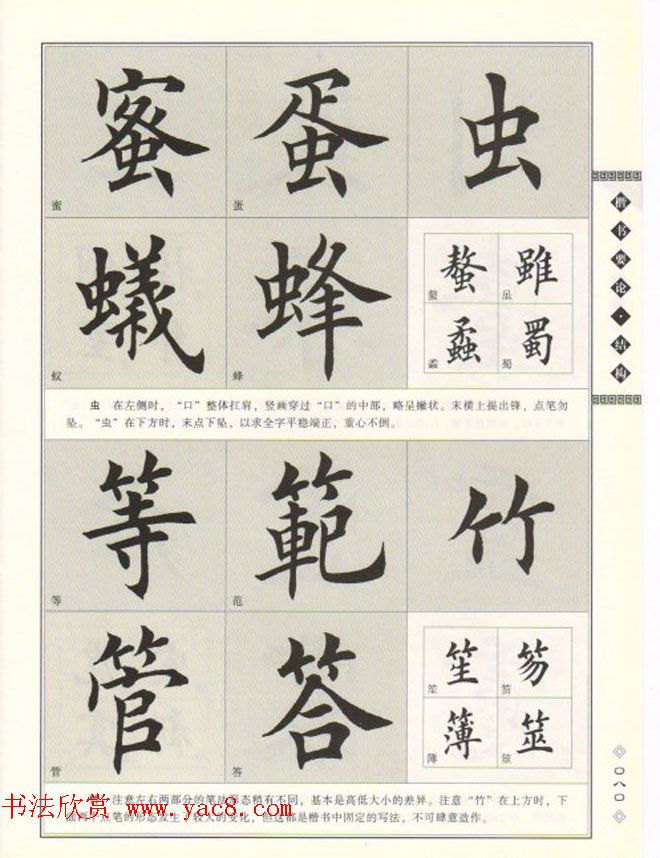 蜜 蛋 虫
蜜 蛋
蟻 蜂
蚁 蜂
螯 雖
螯 虽
蟊 蜀
蟊 蜀
虫 在左侧时，“口”整体扛肩，竖画穿过“口”的中部，略呈撇状。末横上提出锋，点笔勿
坠。“虫”在下方时，末点下坠，以求全字平稳端正，重心不倒。
等 範 竹
等 范
管 答
管 答
笙 笏
笙 笏
簿 筮
簿 筮
注意左右两部分的笔动形态稍有不同，基本是高低大小的差异。注意“竹”在上方时，下
面两个点笔的形态发生了较大的变化，但这都是楷书中固定的写法，不可肆意造作。
书法欣赏 www.yac8.com
楷书要论·结构
〇八〇